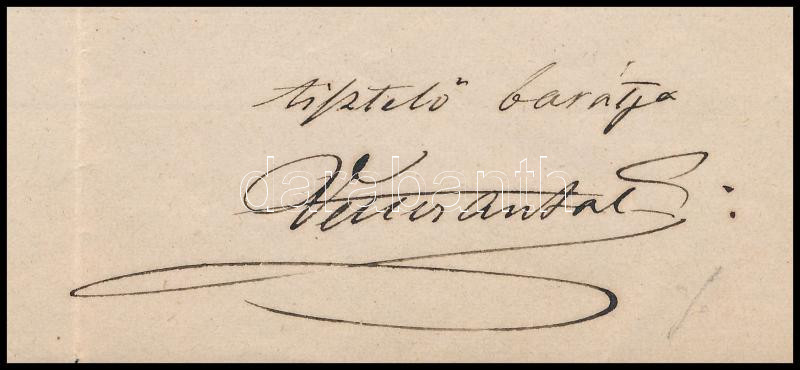 tisztelő barátja
Vetter Antal
darabanth.com